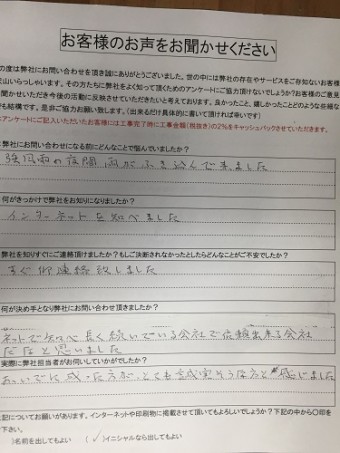 お客様のお声をお聞かせください
の度は弊社にお問い合わせを頂き誠にありがとうございました。世の中には弊社の存在やサービスをご存知ないお客様
沢山いらっしゃいます。その方たちに弊社をよく知って頂くためのアンケートにご協力頂けないでしょうか?お客様のご意見
聞かせいただき今後の活動に反映させていただきたいと考えております。良かったこと、嬉しかったことどのような些細な
でも結構です。是非ご協力お願い致します。(出来るだけ具体的に書いて頂ければ幸いです)
アンケートにご記入いただいたお客様には工事完了時に工事金額(税抜き)の2%をキャッシュバックさせていただきます。
弊社にお問い合わせになる前にどんなことで悩んでいましたか?
強風雨の夜間雨がふき込んで来ました
何がきっかけで弊社をお知りになりましたか?
インターネットを知べました
弊社を知りすぐにご連絡頂けましたか?もしご決断されなかったとしたらどんなことがご不安でしたか?
すぐ御連絡致しました
何が決め手となり弊社にお問い合わせ頂きましたか?
ネットで知べ長く続いている会社で信頼出来る会社
だなと思いました
実際に弊社担当者がお伺いしていかがでしたか?
おいでに成った方が、とても誠実そうな方と感じました
上記についてお願いがあります。インターネットや印刷物に掲載させて頂いてもよろしいでしょうか?下記の中から〇印を
下さい。
)名前を出してもよい (✓)イニシャルなら出してもよい